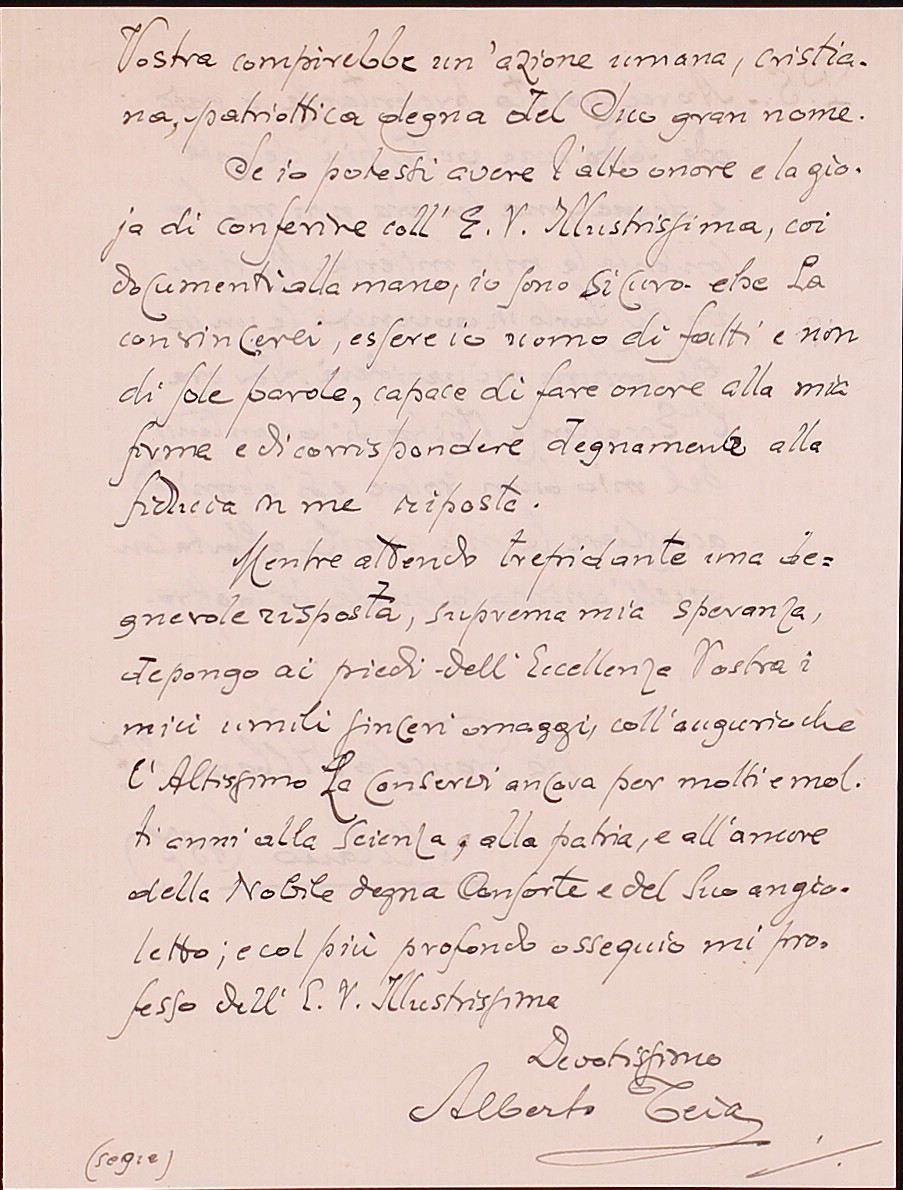 Vostra compirebbe un'azione umana, cristia-
na, patriottica degna del Suo gran nome.
Se io potessi avere l'alto onore e la gio-
ja di conferire coll'E. V. Illustrissima, coi
documenti alla mano, io sono sicuro che La
convincerei, essere io uomo di fatti e non
di sole parole, capace di fare onore alla mia
firma e di corrispondere degnamente alla
fiducia in me riposta.
Mentre attendo trepidante una be=
gnevole risposta, suprema mia speranza,
depongo ai piedi dell'Eccellenza Vostra i
miei umili sinceri omaggi, coll'augurio che
l'Altissimo La conservi ancora per molti e mol-
ti anni alla Scienza, alla patria, e all'amore
della Nobile degna Consorte e del Suo angio-
letto; e col più profondo ossequio mi pro-
fesso dell'E. V. Illustrissima
Devotissimo
Alberto Teia
(segue)